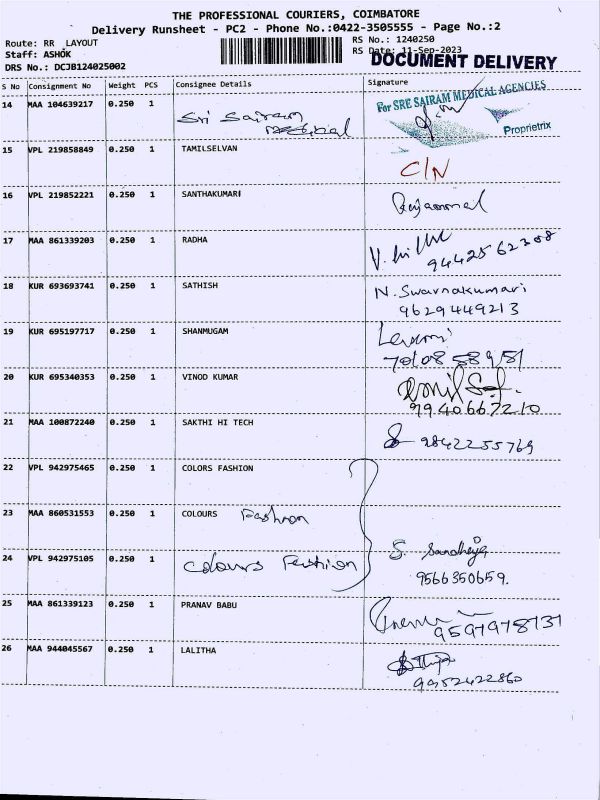 THE PROFESSIONAL COURIERS, COIMBATORE
Delivery Runsheet - PC2 - Phone No.:0422-3505555 - Page No.:2
Route: RR LAYOUT
RS No.: 1240250
Staff: ASHOK
RS Date: 11-Sep-2023
DRS No.: DCJB124025002
DOCUMENT DELIVERY
S No Consignment No Weight PCS Consignee Details Signature
14 MAA 104639217 0.250 1 Sri Sairam
For SRE SAIRAM MEDICAL AGENCIES
Proprietrix
15 VPL 219858849 0.250 1 TAMILSELVAN C/N
16 VPL 219852221 0.250 1 SANTHAKUMARI Rajammal
17 MAA 861339203 0.250 1 RADHA
9442562308
18 KUR 693693741 0.250 1 SATHISH N. Swarnakumari
9629449213
19 KUR 695197717 0.250 1 SHANMUGAM Laxmi
20 KUR 695340353 0.250 1 VINOD KUMAR
9940667210
21 MAA 100872240 0.250 1 SAKTHI HI TECH 9842255769
22 VPL 942975465 0.250 1 COLORS FASHION
23 MAA 860531553 0.250 1 COLOURS Fashion
24 VPL 942975105 0.250 1 Colours Fashion S. Sandhiya
9566350659.
25 MAA 861339123 0.250 1 PRANAV BABU
9597978737
26 MAA 944045567 0.250 1 LALITHA
9952422860